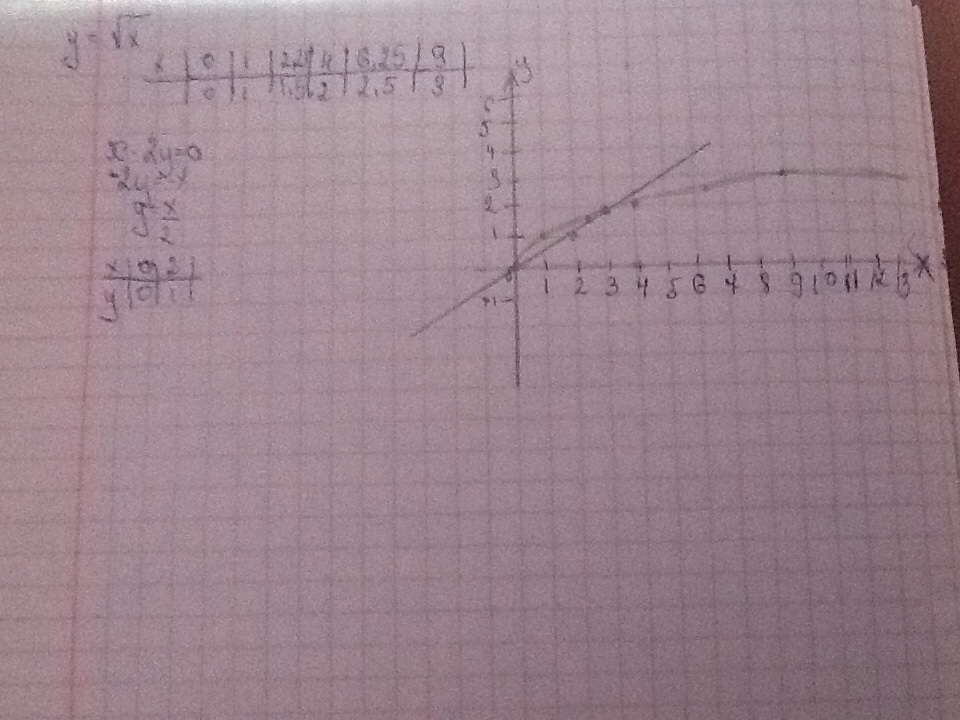 y = √x
x | 0 | 1 | 2,21 | 4 | 6,25 | 9 |
| 0 | 1 | 1,5 | 2 | 2,5 | 3 |
x - 2y = 0
-2y = -x
y = x
2
x | 0 | 2 |
y | 0 | 1 |
y
6
5
4
3
2
1
0
-1
1 2 3 4 5 6 7 8 9 10 11 12 13 x